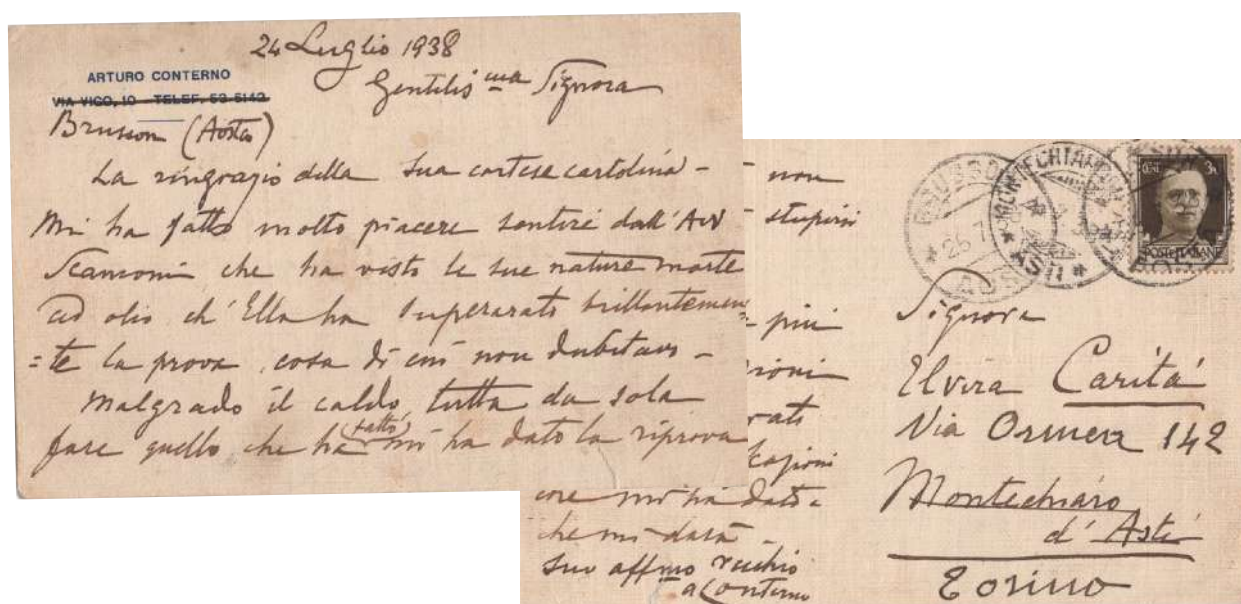 24 Luglio 1938
ARTURO CONTERNO
VIA VICO, 10 - TELEF. 53-5142
Gentilis ma Signora
Brusson (Aosta)
La ringrazio della sua cortese cartolina -
Mi ha fatto molto piacere sentire dall'Avv
che ha visto le sue nature morte
ad olio ch'Ella ha superarato brillantemen
=te la prova, cosa di cui non dubitavo -
Malgrado il caldo, tutta da sola
fare quello che ha (fatto) mi ha dato la riprova
non
stupirsi
più
rioni
rati
cazioni
ore mi ha dato -
che mi darà -
Suo affmo vecchio
a Conterno
BRUSSON
26 7
AOSTA
MONTECHIARO
ASTI
CENT. 30
POSTE ITALIANE
Signora
Elvira Caritá
Via Ormea 142
Montechiaro
d'Asti
Torino